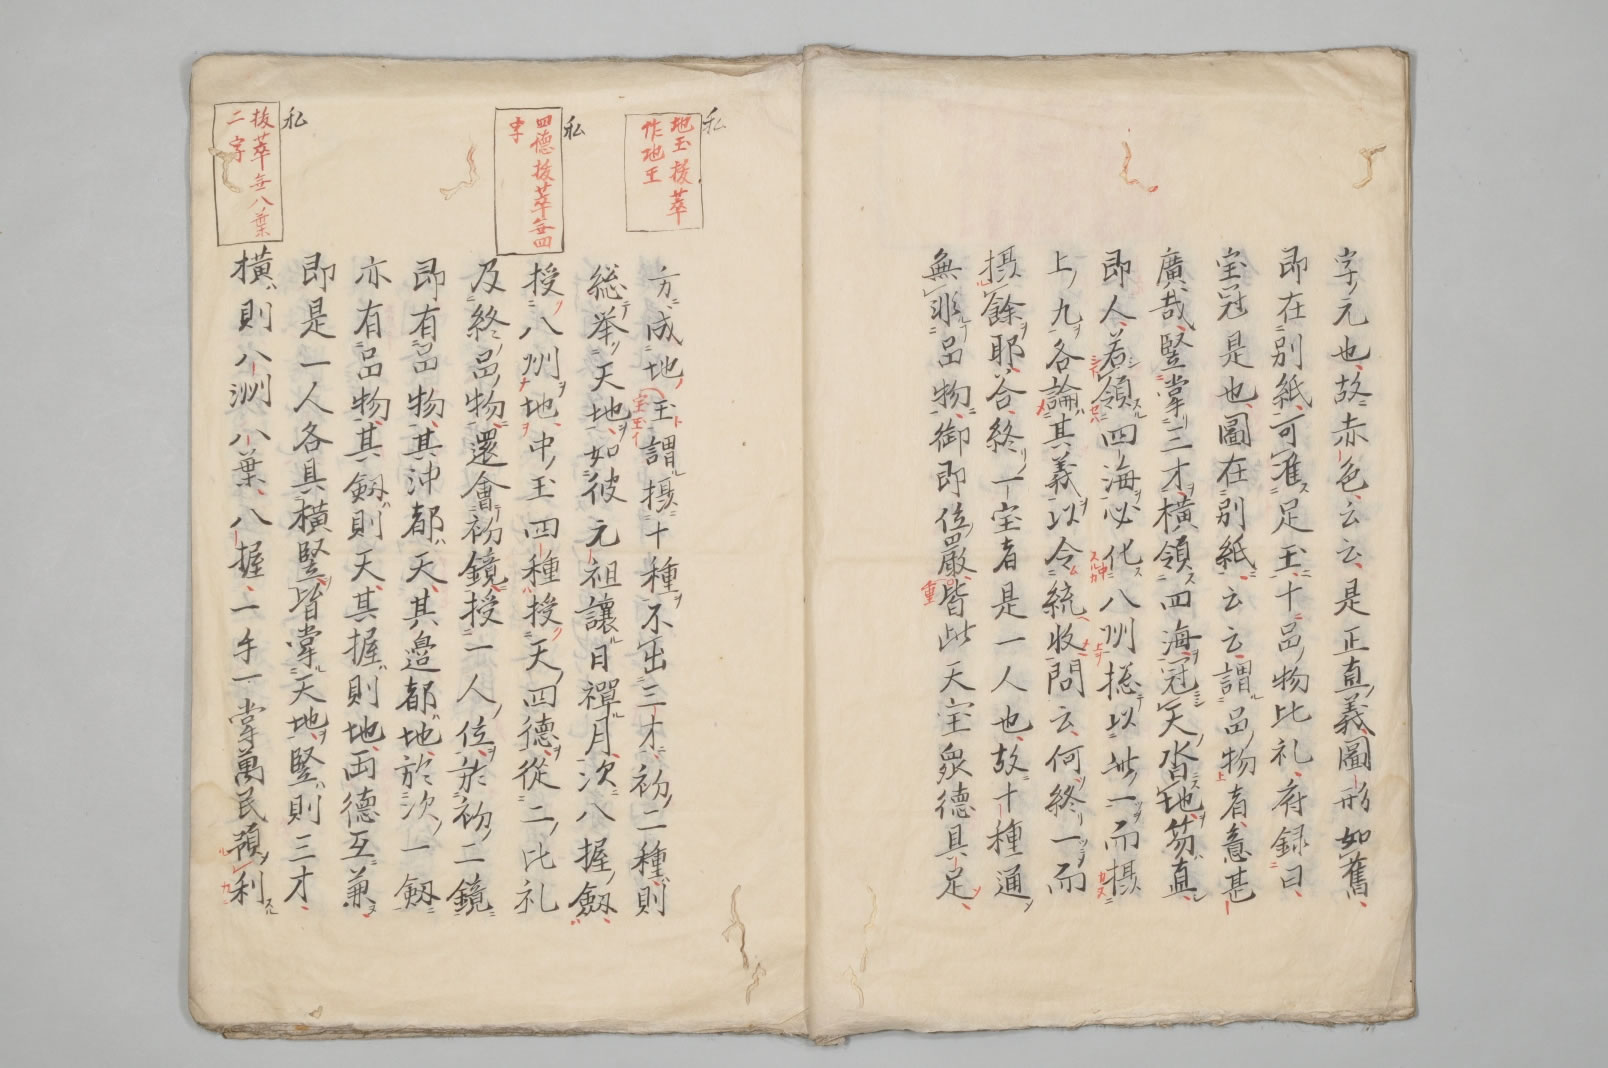 字元也故赤色云云是正直義圖形如舊
即在別紙可准足玉十品物比礼府録曰
宝冠是也圖在別紙云云謂品物者意甚
廣哉竪掌三才横領四海冠天沓地笏直
即人若領四海必化八州捴以此一而摂
上九各論其義以令統收問云何終一而
摂餘耶答終一宝者是一人也故十種通
無非品物御即位嚴皆此天宝衆德具足
私
地玉拔萃
作地王
私
四德拔萃無四
字
私
拔萃無八葉
二字
方成地玉謂摂十種不出三才初二種則
総举天地如彼元祖讓日禪月次八握劔
授八州地中玉四種授天四德從二比礼
及終品物還會初鏡授一人位於初二鏡
即有品物其沖都天其邊都地於次一劔
亦有品物其劔則天其握則地両德互兼
即是一人各具横竪皆掌天地竪則三才
横則八洲八葉八握一手一掌萬民預利